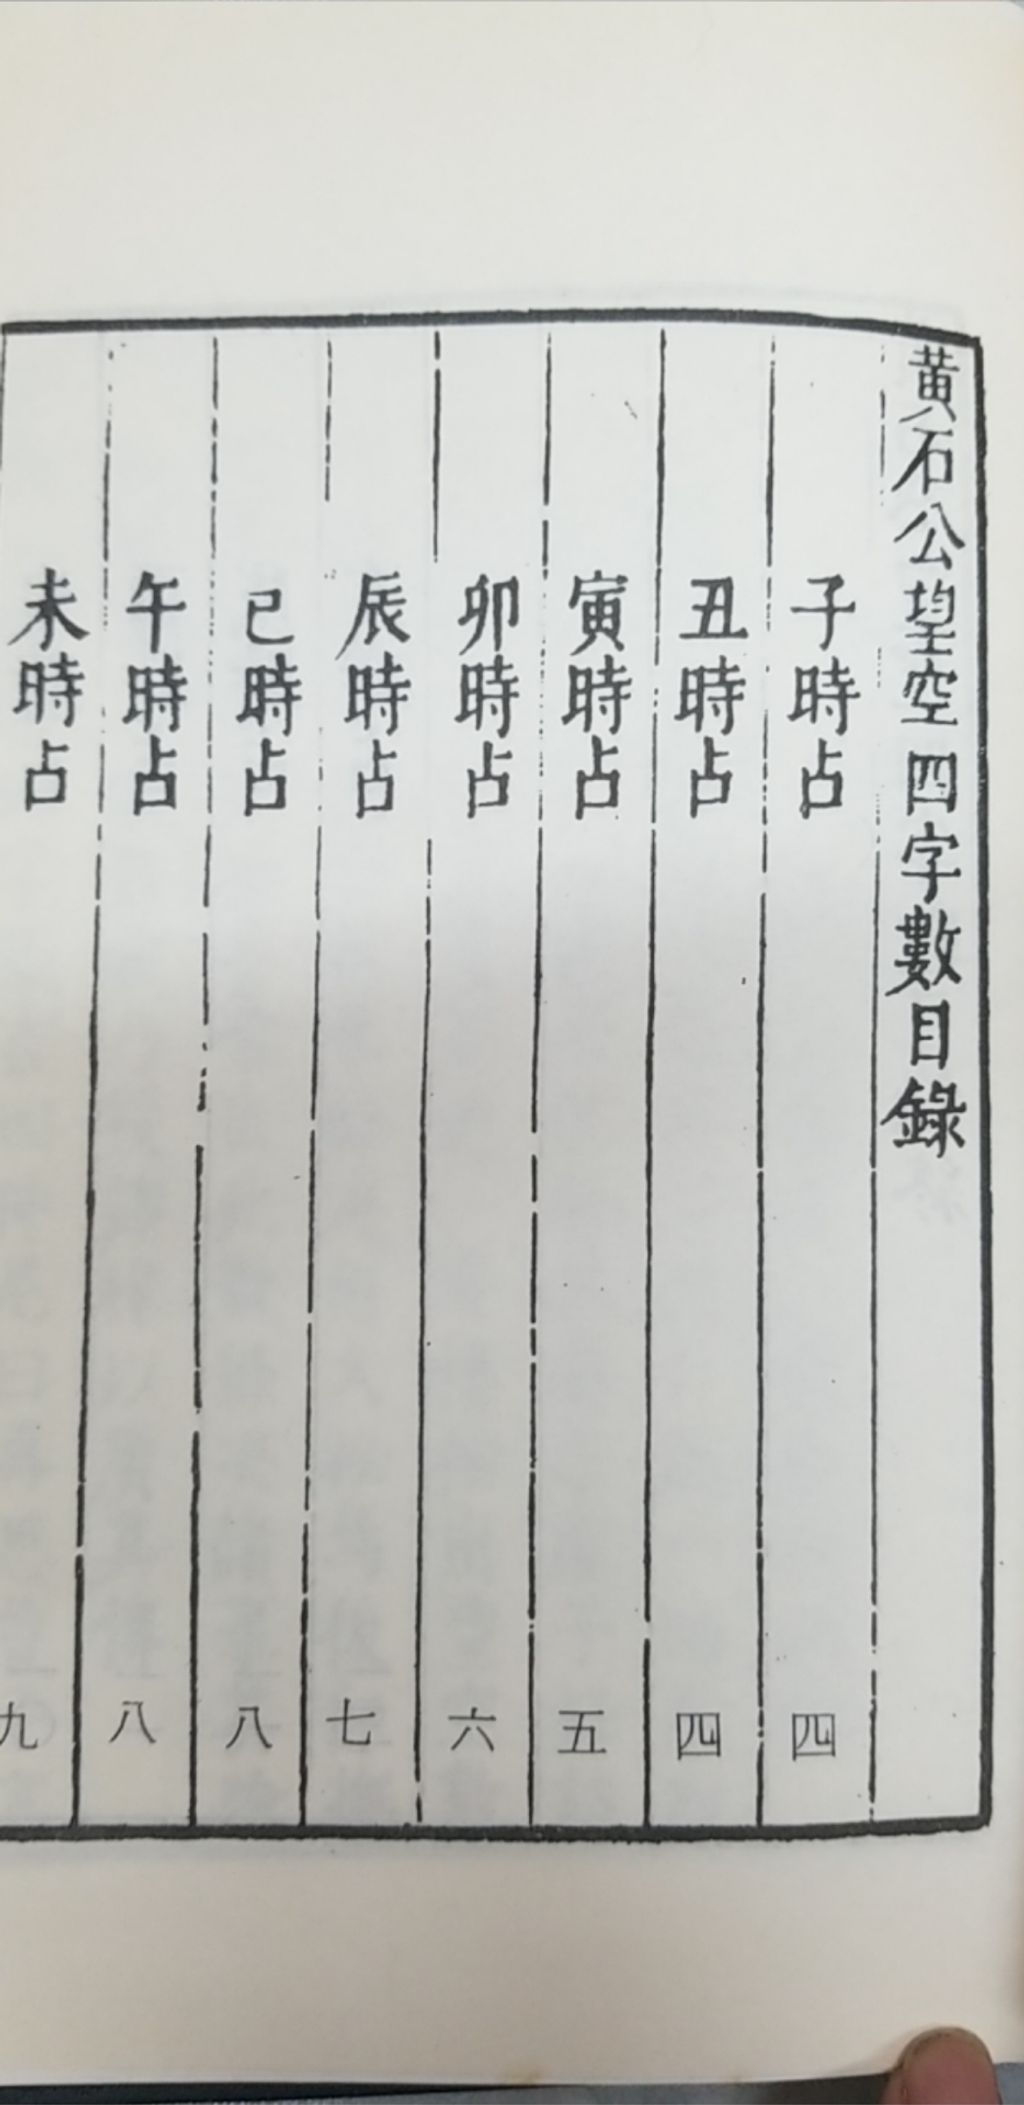 黃石公望空四字數目錄
子時占 四
丑時占 四
寅時占 五
卯時占 六
辰時占 七
巳時占 八
午時占 八
未時占 九